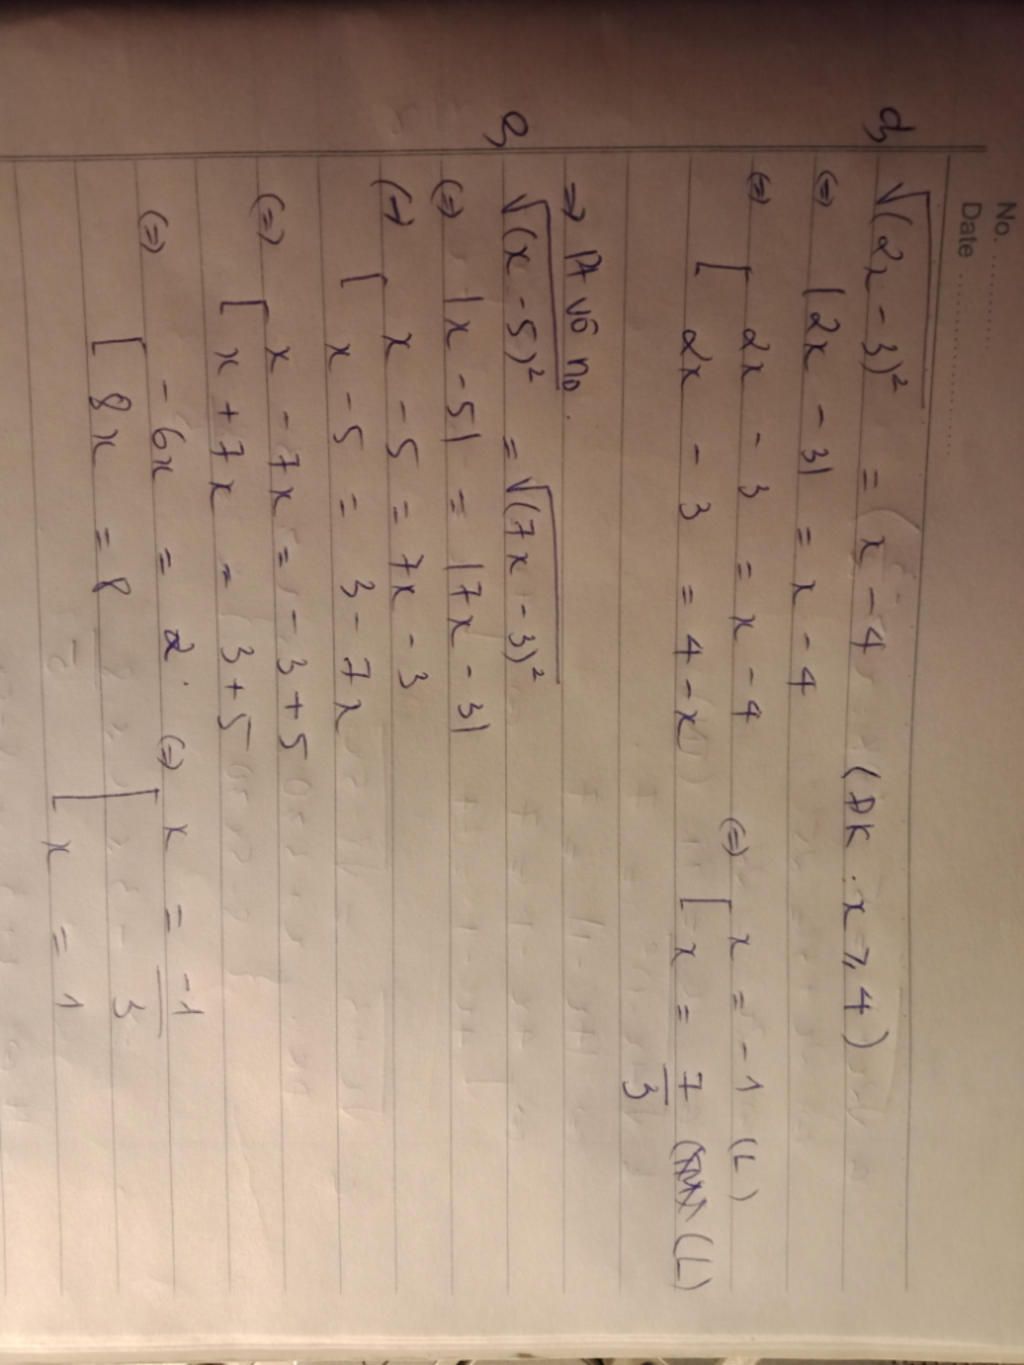 No. ............
Date ......................
d, √(2x - 3)² = x - 4 (ĐK : x ⩾ 4)
(=) |2x - 3| = x - 4
(=) [ 2x - 3 = x - 4 (=) [ x = -1 (L)
2x - 3 = 4 - x x = 7/3 (L)
=> Pt vô no.
e, √(x - 5)² = √(7x - 3)²
(=) |x - 5| = |7x - 3|
(=) [ x - 5 = 7x - 3
x - 5 = 3 - 7x
(=) [ x - 7x = -3 + 5
x + 7x = 3 + 5
(=) [ -6x = 2 (=) [ x = -1/3
8x = 8 x = 1